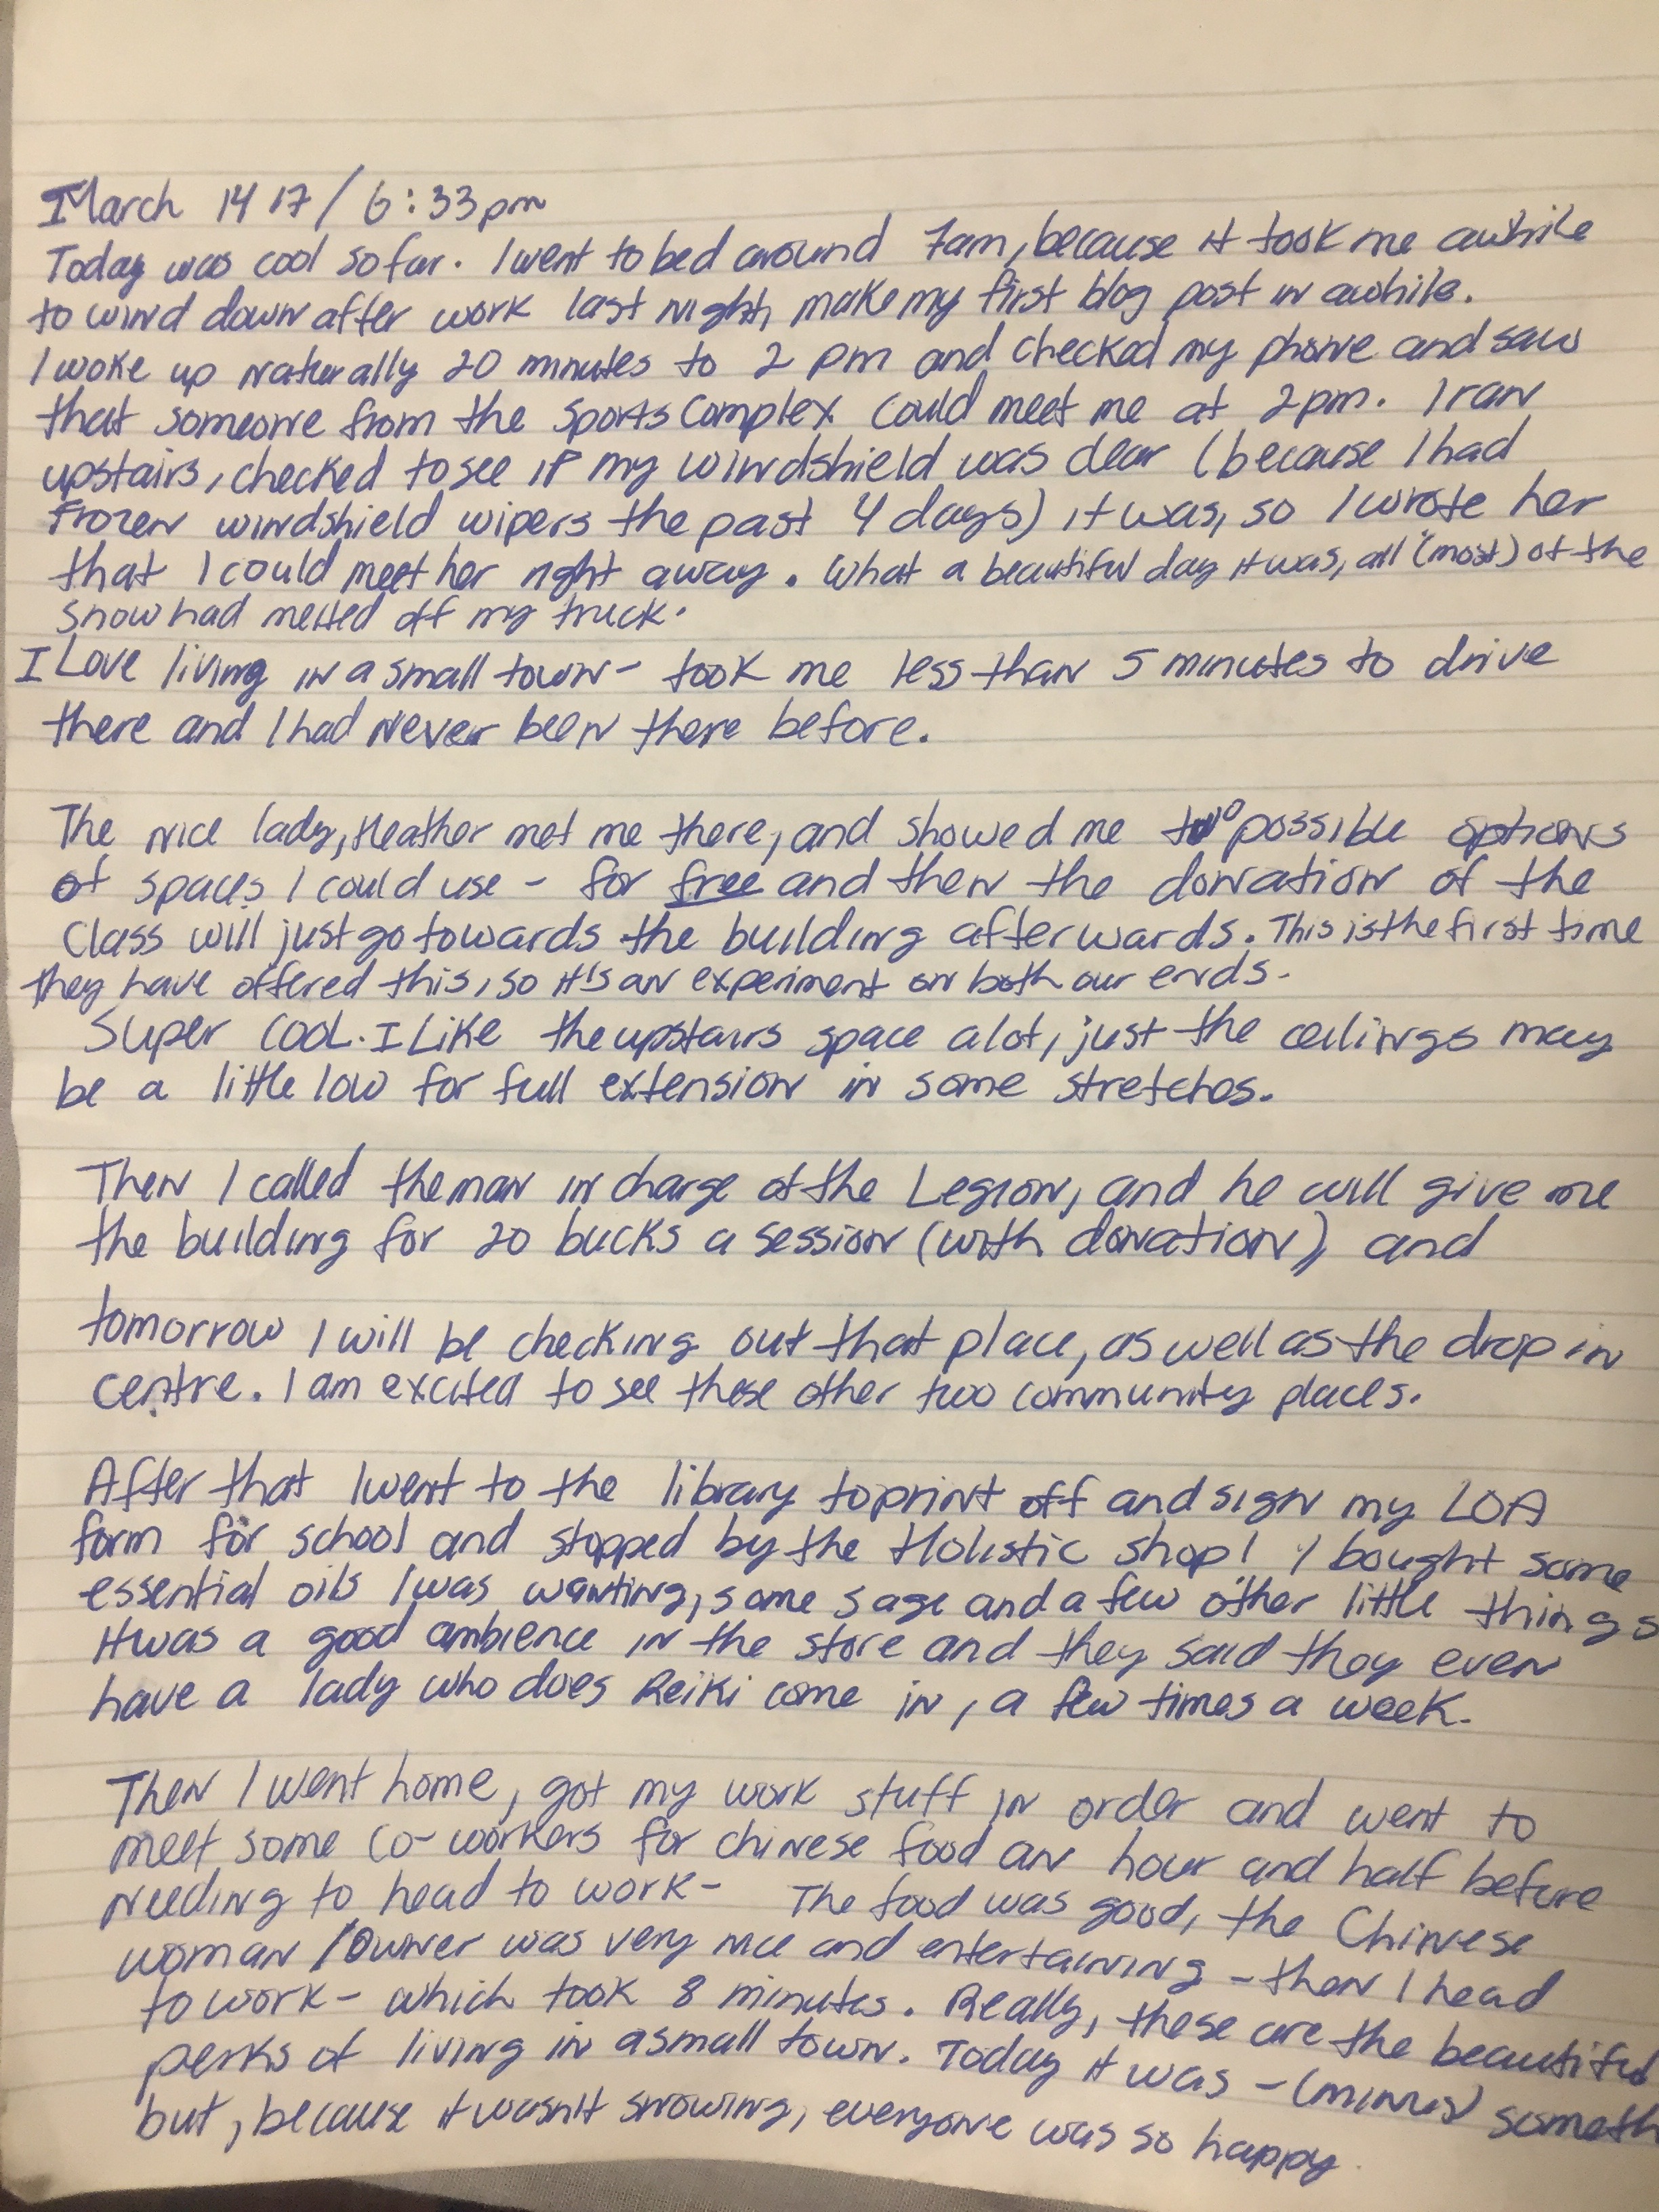 March 14 17 / 6:33pm
Today was cool so far. I went to bed around 7am, because it took me awhile
to wind down after work last night, make my first blog post in awhile.
I woke up naturally 20 minutes to 2 pm and checked my phone and saw
that someone from the Sports Complex could meet me at 2pm. I ran
upstairs, checked to see if my windshield was clear (because I had
frozen windshield wipers the past 4 days) it was, so I wrote her
that I could meet her right away. What a beautiful day it was, all (most) of the
snow had melted off my truck.
I Love living in a small town - took me less than 5 minutes to drive
there and I had never been there before.
The nice lady, Heather met me there, and showed me two possible options
of spaces I could use - for free and then the donation of the
class will just go towards the building afterwards. This is the first time
they have offered this, so it's an experiment on both our ends.
Super cool. I Like the upstairs space alot, just the ceilings may
be a little low for full extension in some stretches.
Then I called the man in charge of the Legion, and he will give me
the building for 20 bucks a session (with donation), and
tomorrow I will be checking out that place, as well as the drop in
centre. I am excited to see these other two community places.
After that I went to the library to print off and sign my LOA
form for school and stopped by the Holistic shop! I bought some
essential oils I was wanting, some sage and a few other little things
It was a good ambience in the store and they said they even
have a lady who does Reiki come in, a few times a week.
Then I went home, got my work stuff in order and went to
meet some co-workers for chinese food an hour and half before
needing to head to work - The food was good, the Chinese
woman / owner was very nice and entertaining - then I head
to work - which took 8 minutes. Really, these are the beautiful
perks of living in a small town. Today it was - (minus) someth
but, because it wasn't snowing, everyone was so happy.